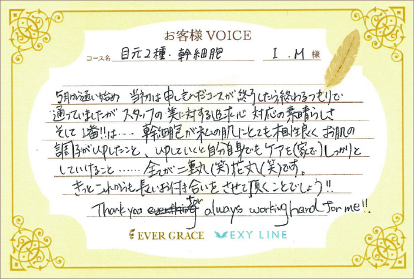 お客様 VOICE
コース名 目元2種・幹細胞 I.M 様
5月から通い始め 当初は申し込んだコースが終了したら終わるつもりで
通っていましたが スタッフの美に対する追求心 対応の素晴らしさ
そして1番!!は… 幹細胞が私の肌にとても相性良く お肌の
調子がUPしたこと、UPしていくと自分自身でもケアを(家で)しっかりと
していけること…… 全てが二重丸(笑)花丸(笑)です。
きっとこれからも長いお付き合いをさせて頂くことでしょう!!
Thank you for always working hard for me!!
EVER GRACE EXY LINE